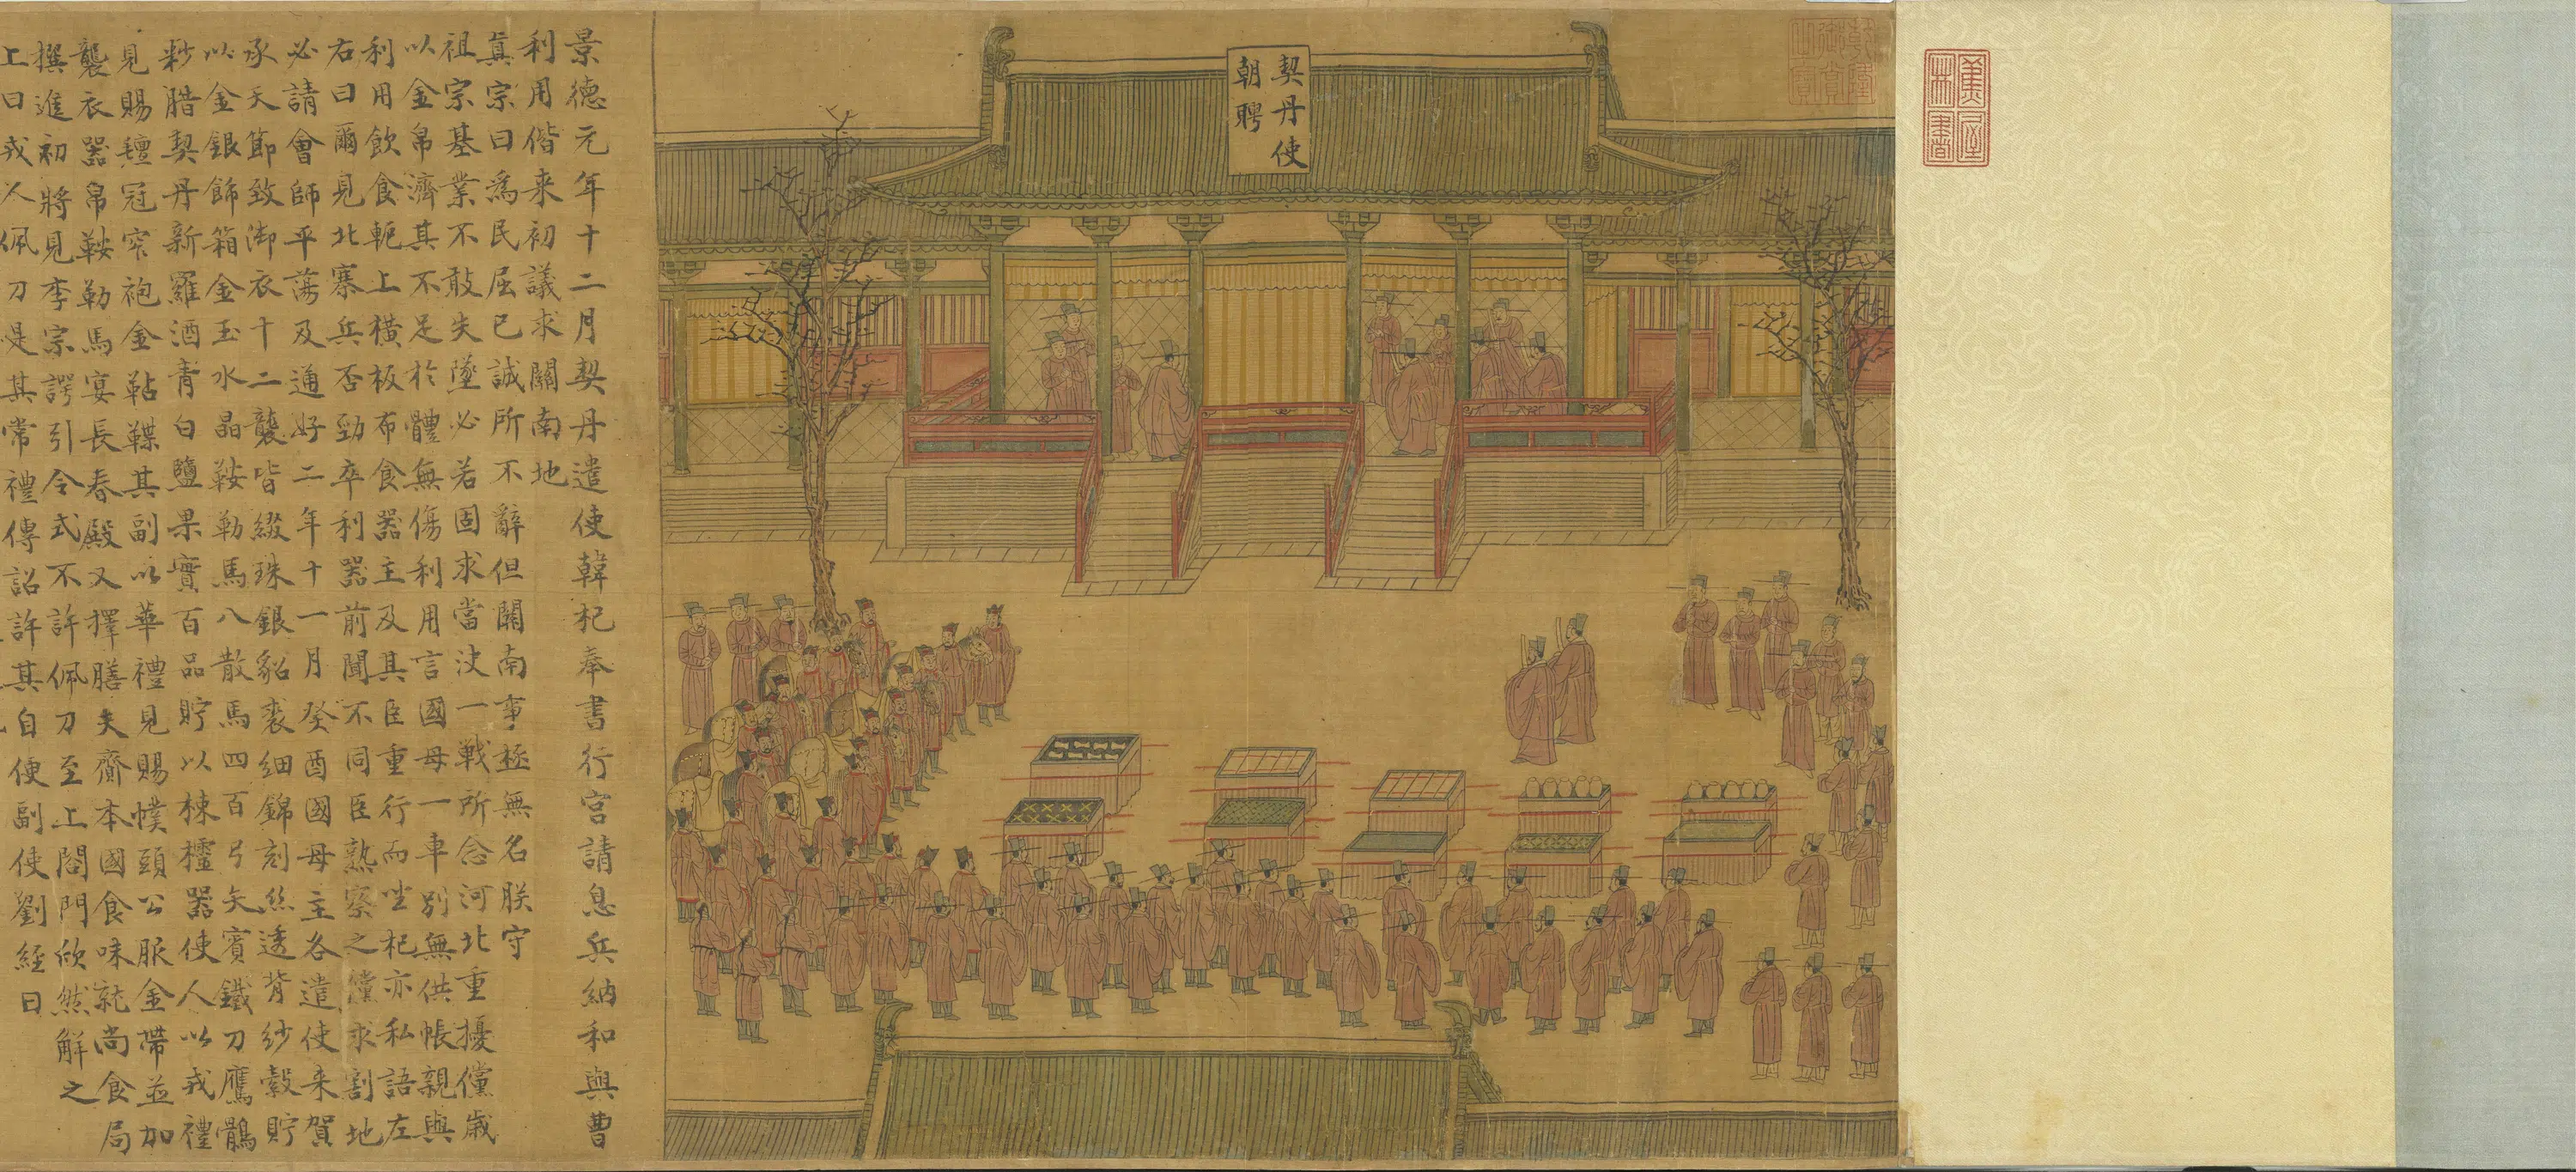 蕉林書屋
乾隆御覽之寶
契丹使
朝聘
景德元年十二月契丹遣使韓杞奉書行宮請息兵納和與曹
利用偕来初議求關南地
真宗曰為民屈已誠所不辭但關南事極無名朕守
祖宗基業不敢失墜必若固求當决一戰所念河北重擾儻歲
以金帛濟其不足於體無傷利用言國母一車別無供帳親與
利用飲食軛上橫板布食器主及其臣重行而坐杞亦私語左
右曰爾見北寨兵否勁卒利器前聞不同臣熟察之儻求割地
必請會師平蕩及通好二年十一月癸酉國母主各遣使来賀
承天節致御衣十二襲皆綴珠銀貂裘細錦刻絲透背紗縠貯
以金銀飾箱金玉水晶鞍勒馬八散馬四百弓矢賓鐵刀鷹鶻
粆腊契丹新羅酒青白鹽果實百品貯以棟櫺器使人以戎禮
見賜氊冠窄袍金鞊鞢其副以華禮見賜幞頭公服金帶並加
襲衣器帛鞍勒馬宴長春殿又擇膳夫齎本國食味就尚食局
撰進初將見李宗諤引令式不許佩刀至上閤門欣然解之
上曰戎人佩刀是其常禮傳詔許其自便副使劉經曰